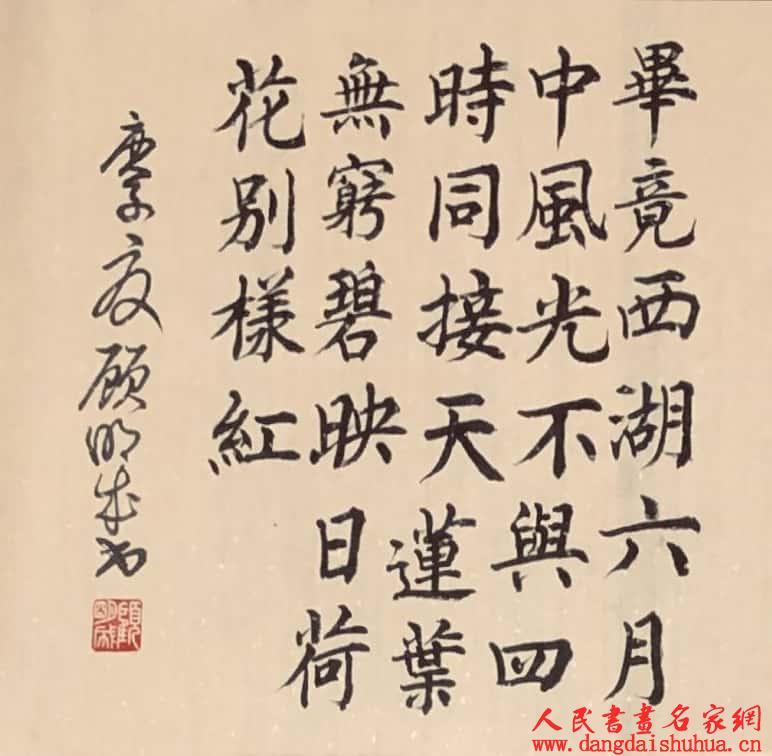 畢竟西湖六月
中風光不與四
時同接天蓮葉
無窮碧映日荷
花別樣紅
庚子夏顧明成书
顧明成
人民書畫名家網
www.dangdaishuhua.cn